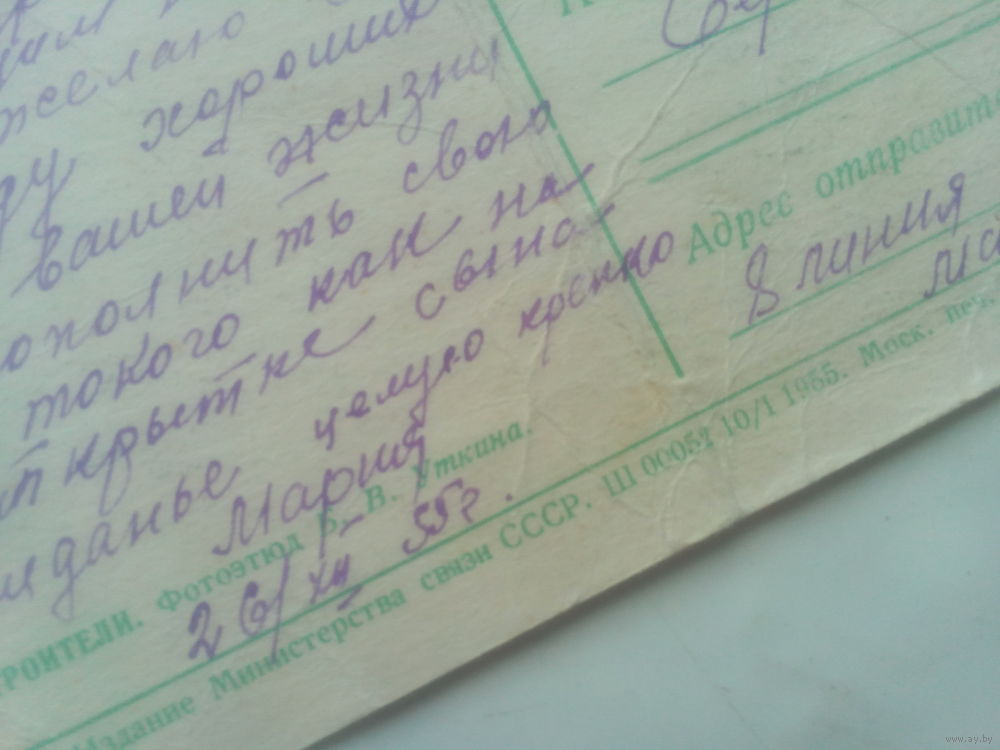 желаю
хороших
вашей жизни
пополнить свою
такого как на
открытке сына
свиданье целую крепко
Мария
26/XII 55г.
Адрес отправите
8 линия
РОИТЕЛИ. Фотоэтюд Б. В. Уткина.
Издание Министерства связи СССР. Ш 00051 10/I 1955. Моск. печ.
www.ay.by